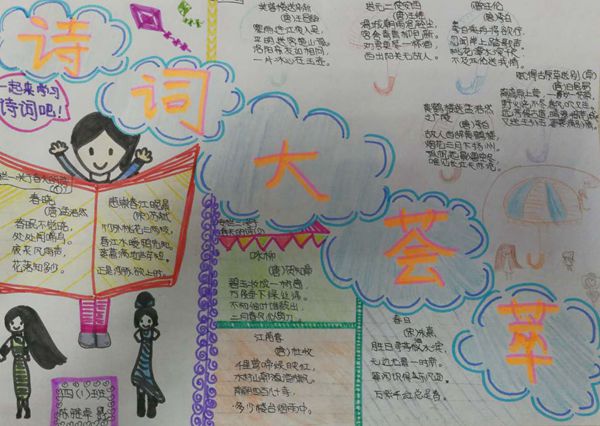 诗词大荟萃
一起来学习
诗词吧！
春晓
(唐)孟浩然
春眠不觉晓,
处处闻啼鸟。
夜来风雨声,
花落知多少。
惠崇春江晚景
(宋)苏轼
竹外桃花三两枝,
春江水暖鸭先知。
正是河豚欲上时。
咏柳
(唐)贺知章
碧玉妆成一树高,
万条垂下绿丝绦。
不知细叶谁裁出,
二月春风似剪刀。
江南春
(唐)杜牧
千里莺啼绿映红,
水村山郭酒旗风。
南朝四百八十寺,
多少楼台烟雨中。
春日
(宋)朱熹
胜日寻芳泗水滨,
无边光景一时新。
等闲识得东风面,
万紫千红总是春。
芙蓉楼送辛渐
(唐)王昌龄
寒雨连江夜入吴,
平明送客楚山孤。
洛阳亲友如相问,
一片冰心在玉壶。
送元二使安西
(唐)王维
渭城朝雨浥轻尘,
客舍青青柳色新。
劝君更尽一杯酒,
西出阳关无故人。
(唐)李白
李白乘舟将欲行,
忽闻岸上踏歌声。
桃花潭水深千尺,
不及汪伦送我情。
(唐)李白
故人西辞黄鹤楼,
烟花三月下扬州。
孤帆远影碧空尽,
唯见长江天际流。
四(1)班